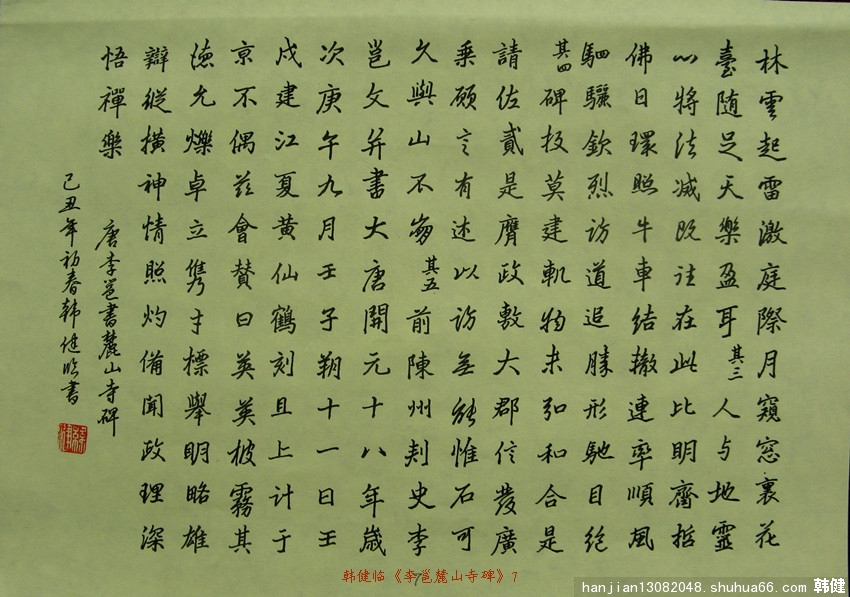 林雲起雷激庭際月窺窓裏花
臺随足天樂盈耳其三人与地靈
以將法滅既註在此比明齊哲
佛日環照牛車結辙連率順風
駟驪欽烈访道追勝形馳目绝
其四碑板莫建軌物未弘和合是
請佐貳是膺政敷大郡信發廣
乘顾言有述以访無能惟石可
久與山不崩其五前陳州刾史李
邕文并書大唐開元十八年歲
次庚午九月壬子朔十一日壬
戌建江夏黄仙鶴刻且上计于
京不偶兹會賛曰英英披霧其
德允爍卓立隽才標舉明略雄
辯縱横神情照灼備聞政理深
悟禪樂
唐李邕書麓山寺碑
己丑年初春韩健临書
韩健临《李邕麓山寺碑》7
hanjian13082048.shuhua66.com 韩健